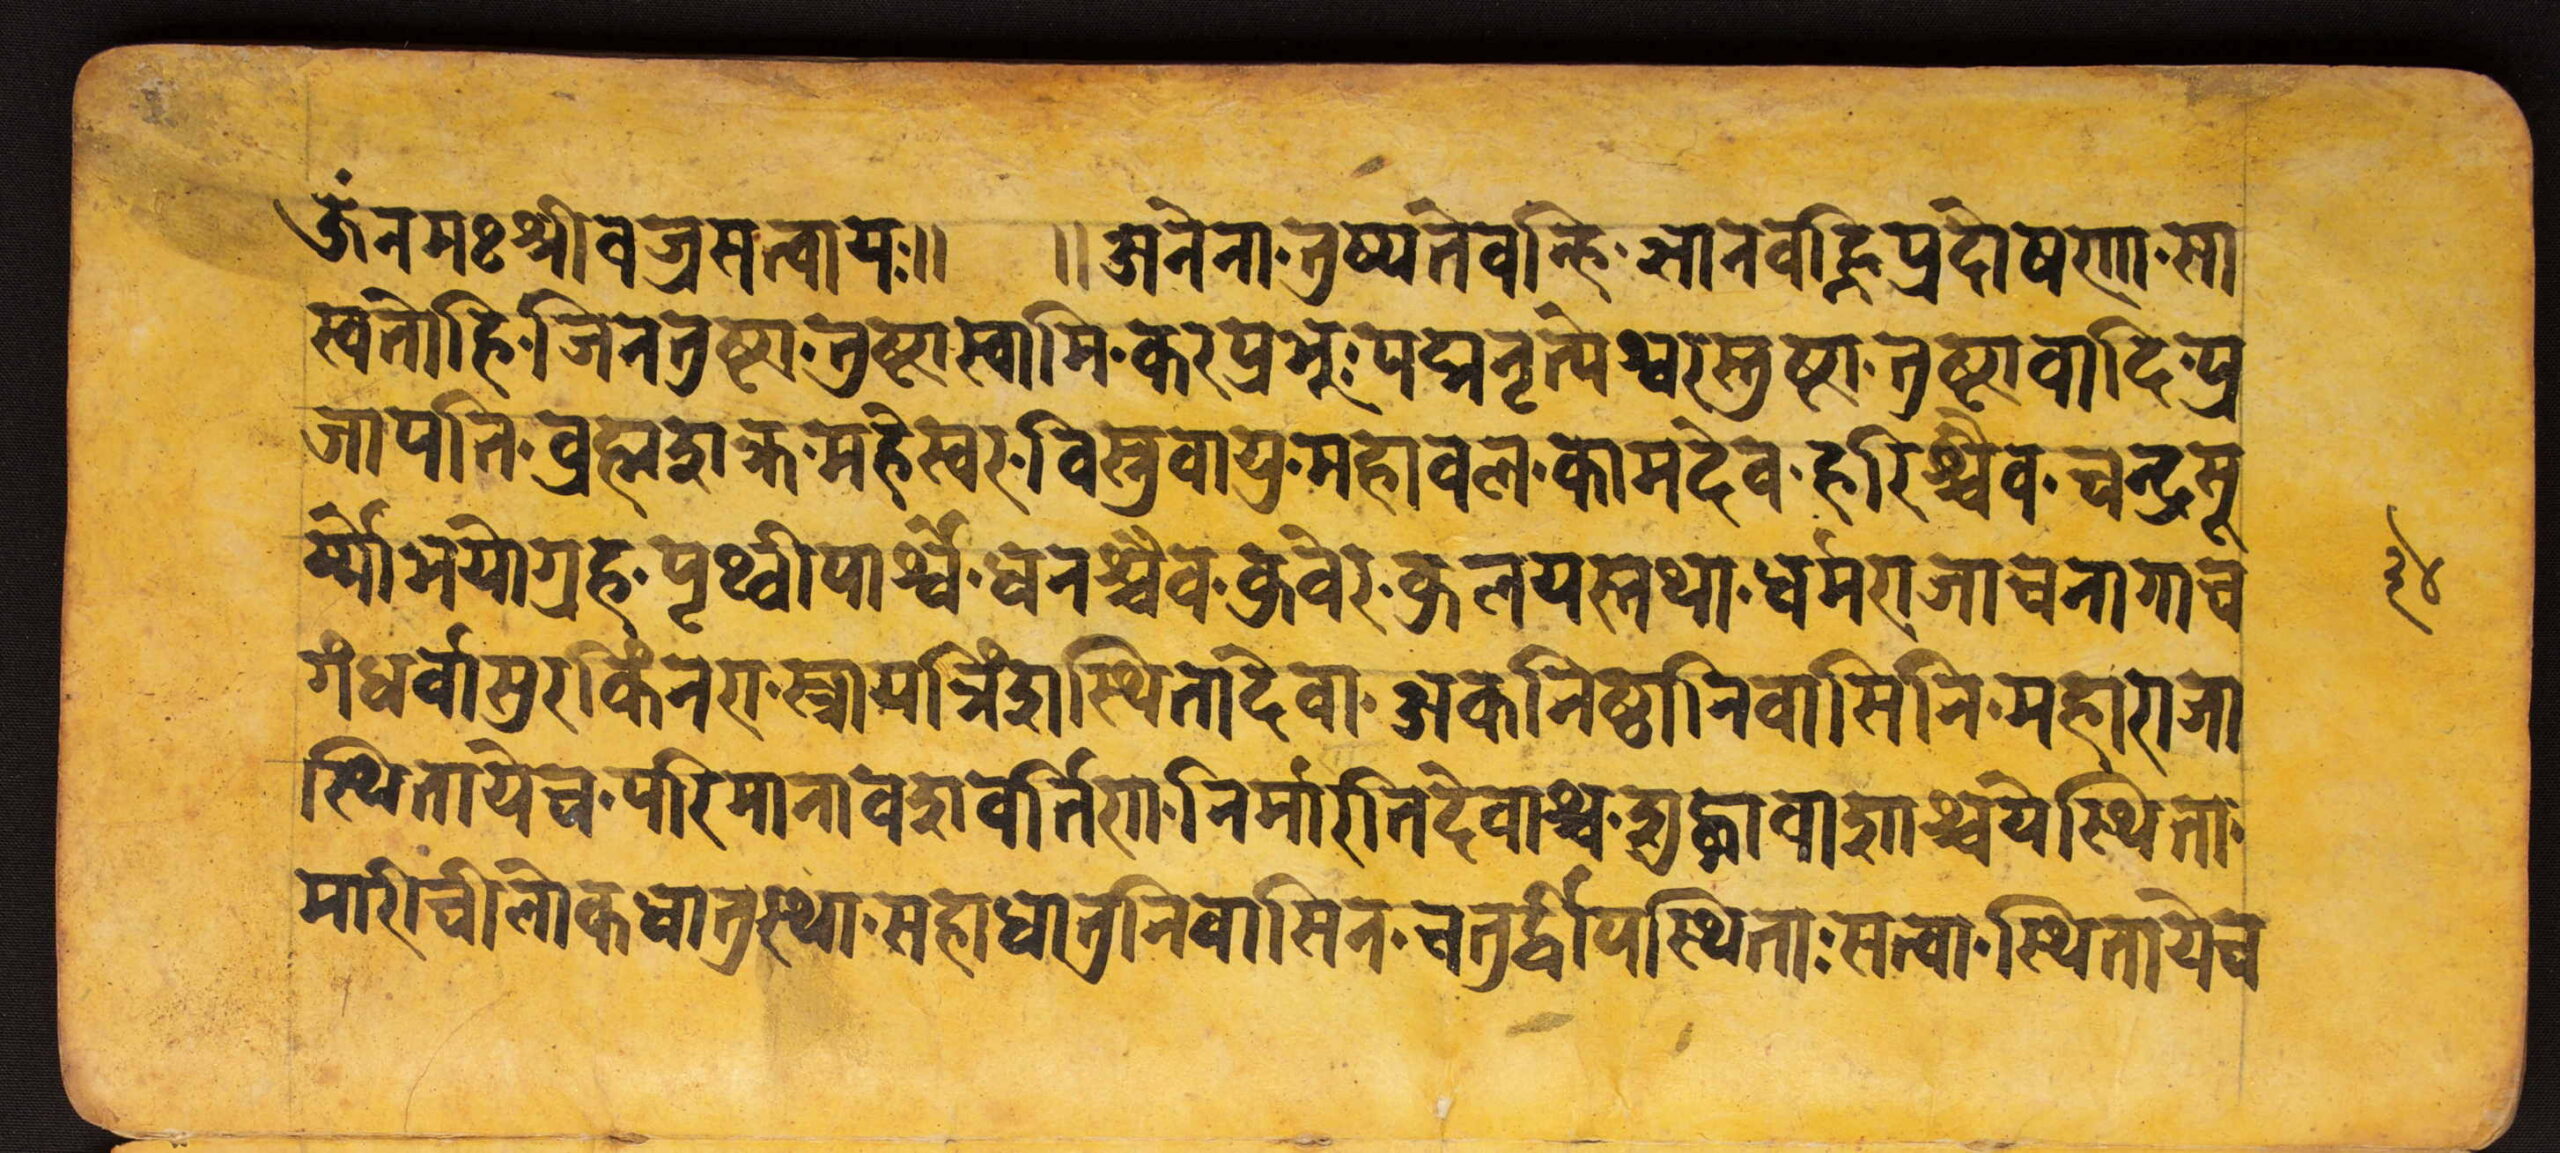 ॐनमःश्रीवज्रसत्वायः॥ ॥अनेनाः तुष्यतेवन्हि· ञानवह्निप्रदोषणाः सा
स्वतोहि· जिनतुष्टाः तुष्टास्वामि· करप्रभूः पद्मनृत्येश्वरस्तुष्टाः तुष्टावादि· प्र
जापति· व्रह्मशक्र· महेस्वर· विस्नुवायु· महावल· कामदेव· हरिश्चैव· चन्द्रसू
र्य्योभयोग्रह· पृथ्वीपार्श्वे· धनश्चैव· कुवेर· कुलयस्तथा· धर्मराजाचनागाच
गंधर्वासुरकिंनराः स्त्रायत्रिंशास्थितादेवाः अकनिष्ठानिवासिनि· महाराजा
स्थितायेच· परिमानावशवर्तिणाः निर्मारतिदेवाश्च· शुद्धावाशाश्चयेस्थिताः
मारीचीलोकधातुस्थाः सहाधातुनिवासिन· चतुर्द्वीपस्थिताः सत्वाः स्थितायेच
३४